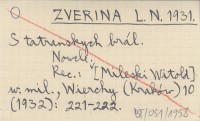 ZVERINA L.N. 1931.
S tatranských brál.
Novell.
Rec.: [Milecki Witold]
w. mil., Wierchy (Kraków) 10
(1932): 221-222.